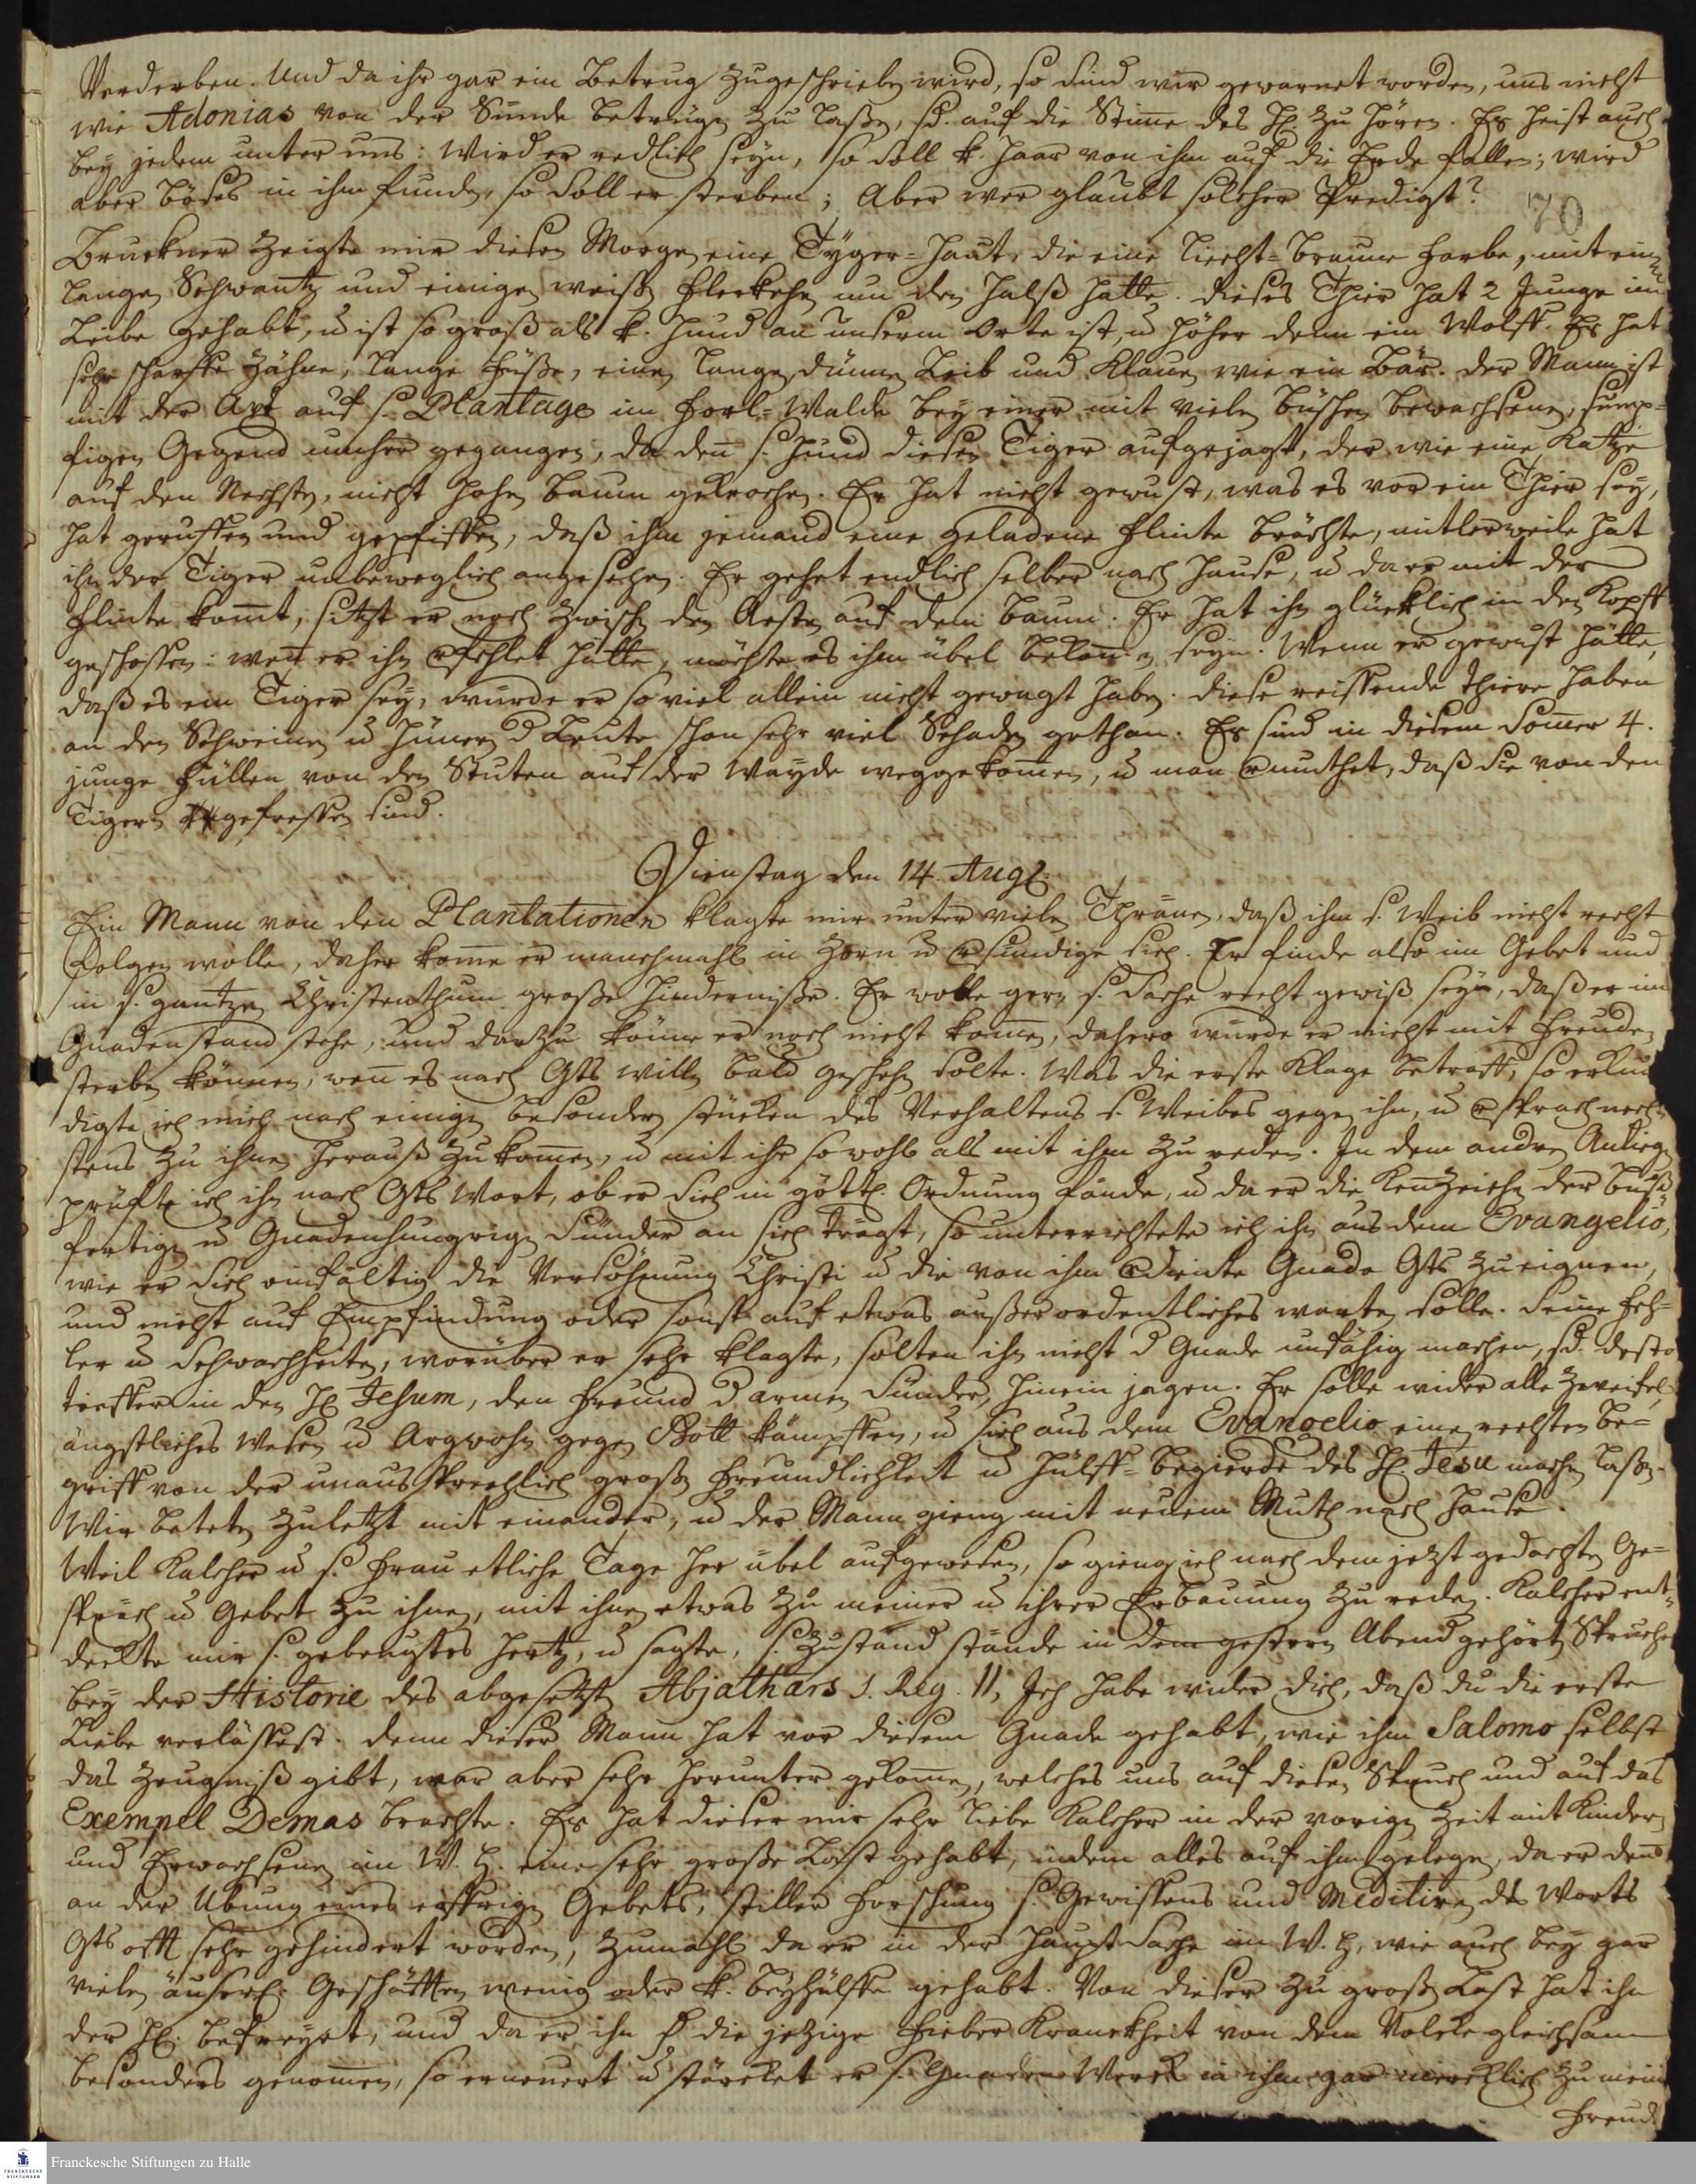 Verderben. Und da ihr gar ein Betrug zugeschrieben wird, so sind wir gewarnet worden, uns nicht
wie Adonias von der Sünde betrügen zu laßen, sd. auf die Stime des H. zu hören. Es heist auch
bey jedem unter uns: Wird er redlich seyn, so soll k. Haar von ihm auf die Erde fallen; wird
aber böses in ihm funden, so soll er sterben; Aber wer glaubt solcher Predigt?
70
Bruckner zeigte mir diesen Morgen eine Tyger-Haut, die eine liecht-braune Farbe, mit einem
langen Schwantz und einigen weißen Fleckchen um den Halß hatte. Dieses Thier hat 2 Junge im
Leibe gehabt, u ist so groß als k. Hund an unserm Orte ist, u höher denn ein Wolff. Er hat
sehr scharffe Zähne, lange Füße, einen langen dünnen Leib und Klauen wie ein Bär. Der Mann ist
mit der Axt auf s. Plantage im Forl-Walde bey einer mit vielen Büschen bewachsenen, sump-
figen Gegend umher gegangen, da den s. Hund diesen Tiger aufgejagt, der wie eine Katze
auf den nechsten, nicht hohen Baum gekrochen. Er hat nicht gewust, was es vor ein Thier sey,
hat geruffen und gepfiffen, daß ihm jemand eine geladene Flinte brächte, mitlerweile hat
ihn der Tiger unbeweglich angesehen. Er gehet endlich selber nach Hause, u da er mit der
Flinte komt, sitzt er noch zwischen den Aesten auf dem Baum. Er hat ihn glücklich in den Kopff
geschossen: wen er ihn verfehlet hätte, möchte es ihm übel bekomen seyn. Wenn er gewust hätte,
daß es ein Tiger sey, würde er so viel allein nicht gewagt haben. Diese reissende Thiere haben
an den Schweinen u Hünern d Leute schon sehr viel Schaden gethan. Es sind in diesem Somer 4.
junge Füllen von den Stuten auf der Wayde weggekomen, u man vermuthet, daß sie von den
Tigern gefressen sind.
Dienstag den 14. Aug.
Ein Mann von den Plantationen klagte mir unter vielen Thränen, daß ihm s. Weib nicht recht
folgen wolle, daher kome er manchmahl in Zorn u versündige sich. Er finde also im Gebet und
in s. gantzen Christenthum große Hinderniße. Er wolle gern s. Sache recht gewiß seyn, daß er im
Gnadenstand stehe, und darzu könne er noch nicht komen, dahero würde er nicht mit Freuden
sterben können, wen es nach Gts willen bald geschehen solte. Was die erste Klage betraff, so erkun
digte ich mich nach einigen besondern stücken des Verhaltens s. Weibes gegen ihn, u versprach nech-
stens zu ihnen herauß zu komen, u mit ihr sowohl als mit ihm zu reden. In dem andern Anliegen
prüfte ich ihn nach Gts Wort, ob er sich in göttl. Ordnung fände, u da er die Kenzeichen der buß
fertigen u Gnadenhungrigen Sünder an sich trägt, so unterrichtete ich ihn aus dem Evangelio,
wie er sich einfältig die Versöhnung Christi u die von ihm verdiente Gnade Gts zueignen,
und nicht auf Empfindung oder sonst auf etwas außerordentliches warten solle. Seine Feh-
ler u Schwachheiten, worüber er sehr klagte, solten ihn nicht d Gnade unfähig machen, sd. desto
tieffer in den H. Jesum, den Freund d armen Sünder, hinein jagen. Er solle wider alle Zweifel,
ängstliches Wesen u Argwohn gegen Gott kämpffen, u sich aus dem Evangelio einen rechten Be-
griff von der unaussprechlich großen Freundlichkeit u Hülff-Begierde des H. Jesu machen laßen.
Wir beteten zuletzt mit einander, u der Mann gieng mit neuem Muth nach Hause.
Weil Kalcher u s. Frau etliche Tage her übel auf gewesen, so gieng ich nach dem jetzt gedachten Ge-
spräch u Gebet zu ihnen, mit ihnen etwas zu meiner u ihrer Erbauung zu reden. Kalcher ent-
deckte mir s. gebeugtes Hertz, u sagte, s. Zustand stände in dem gestern Abend gehörten Spruche
bey der Historie des abgesetzten Abjathars 1. Reg. 11, Ich habe wider dich, daß du die erste
Liebe verlässest. Denn dieser Mann hat vor diesem Gnade gehabt, wie ihm Salomo selbst
das Zeugniß gibt, war aber sehr herunter gekomen, welches uns auf diesen Spruch und auf das
Exempel Demas brachte. Es hat dieser mir sehr liebe Kalcher in der vorigen Zeit mit Kindern
und Erwachsenen im W. H. eine sehr große Last gehabt, indem alles auf ihm gelegen, da er den
an der Übung eines eiffrigen Gebets, stiller Forschung s. Gewissens und Meditiren des Worts
Gts offt sehr gehindert worden, zumahl da er in der Haupt Sache im W. H, wie auch bey gar
vielen äuserl. Geschäfften wenig oder k. Beyhülffe gehabt. Von dieser zu großen Last hat ihn
der H. befreyet, und da er ihn d die jetzige Fieber Kranckheit von dem Volcke gleichsam
besonders genomen, so erneuert u stärcket er s. Gnaden Werck in ihm gar mercklich zu mein
Freude
Franckesche Stiftungen zu Halle